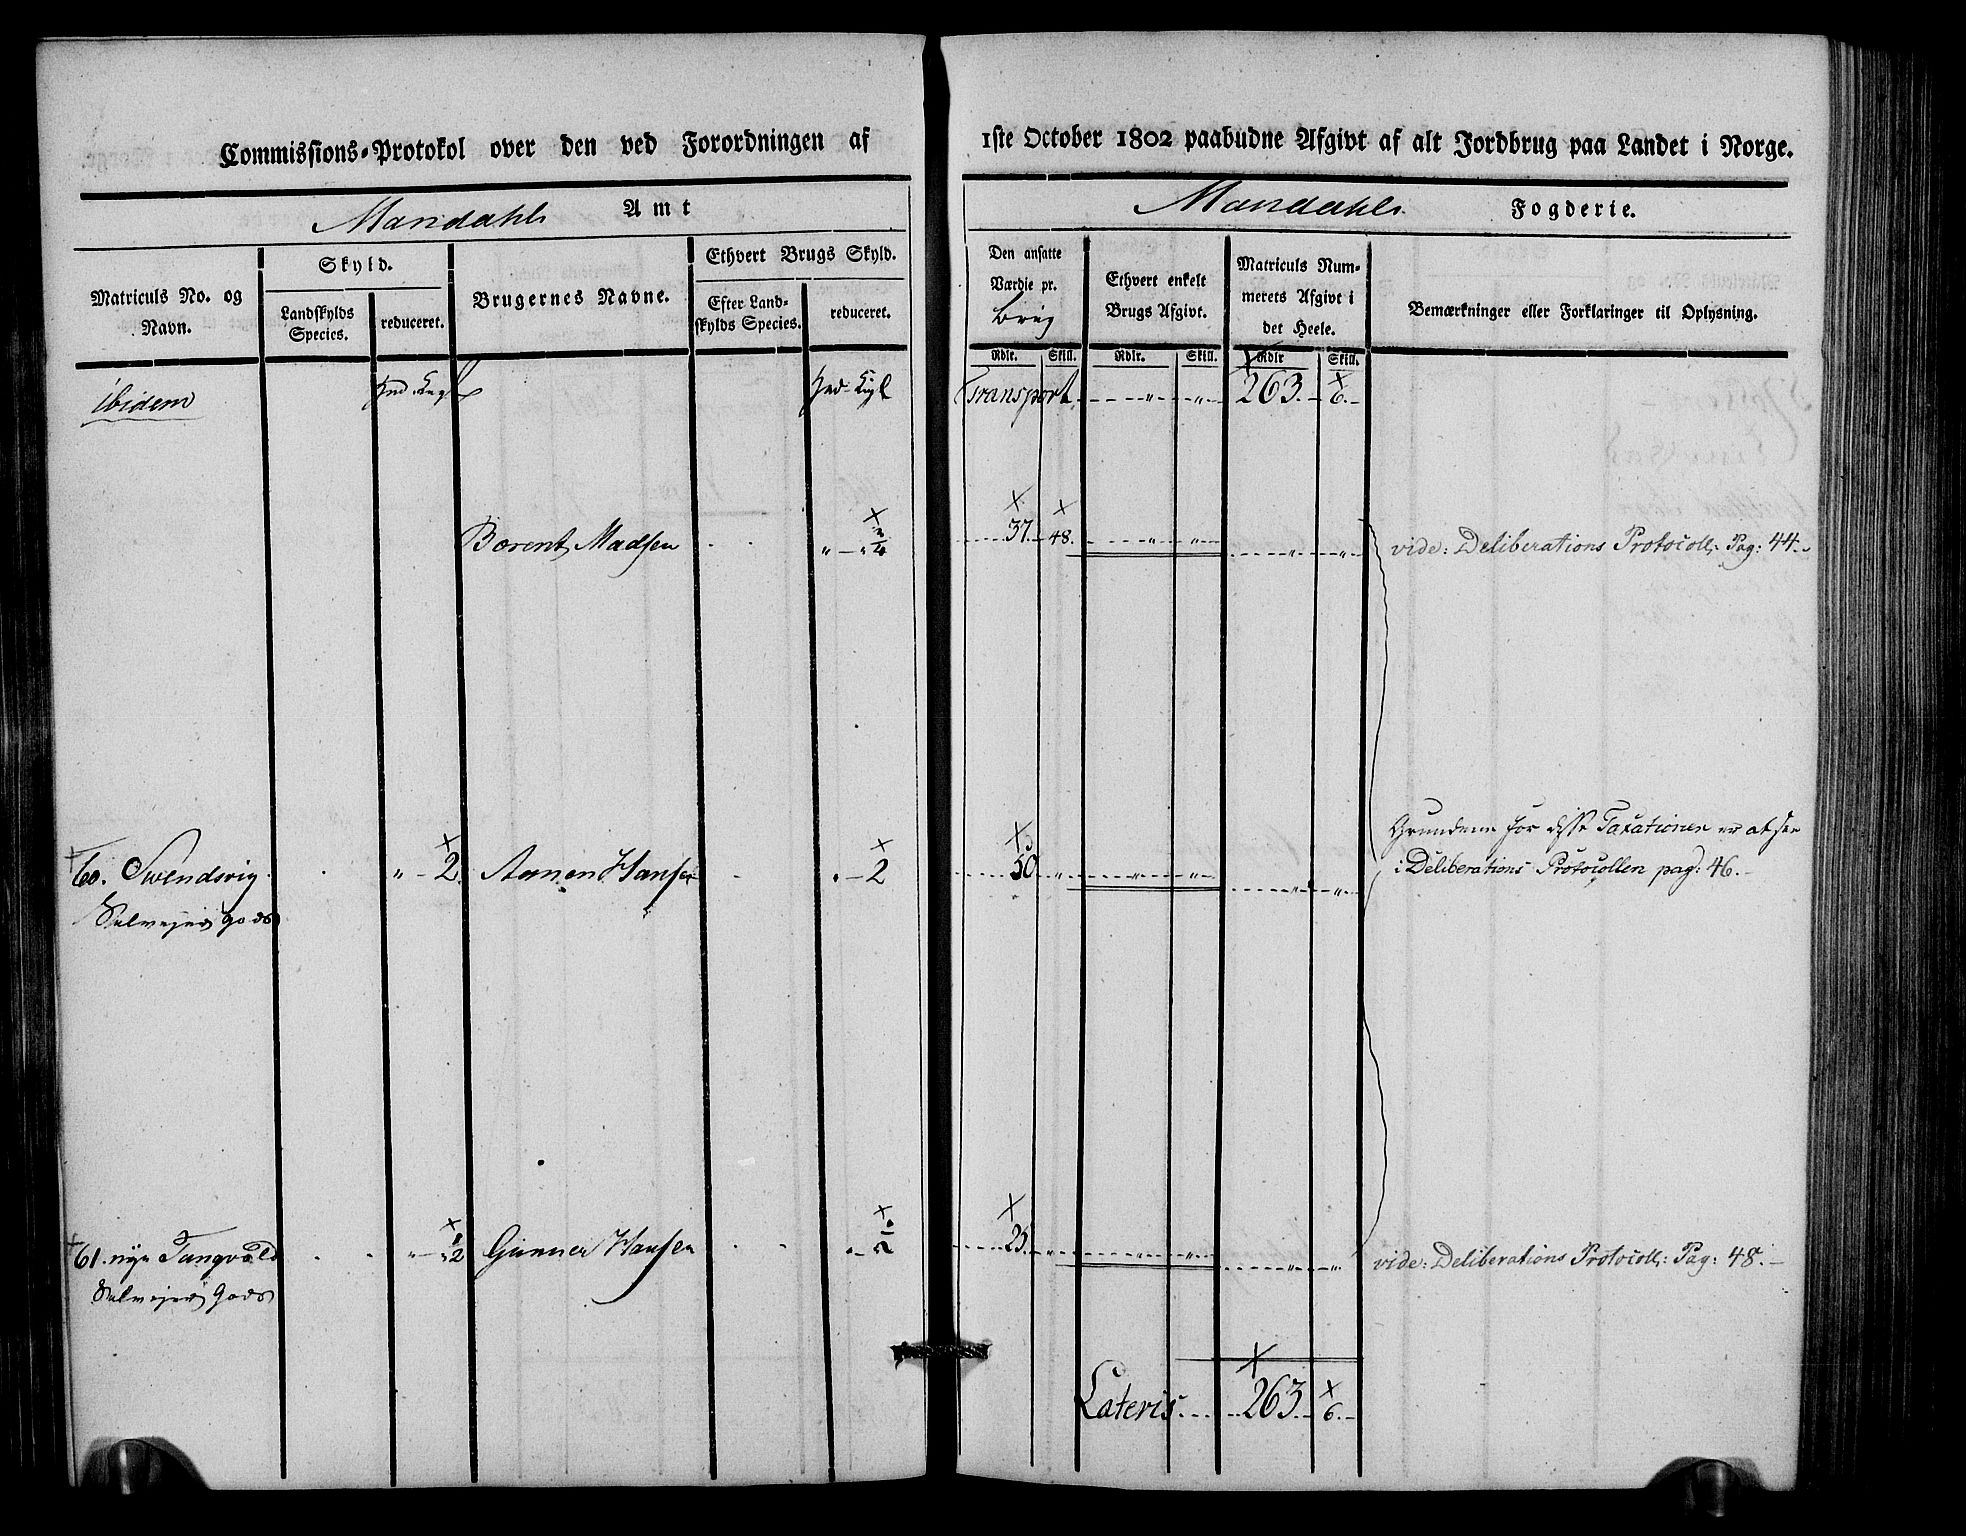 Commissions-Protokol over den ved Forordningen af 1ste October 1802 paabudne Afgivt af alt Jordbrug paa Landet i Norge.
Mandahls Amt
Mandahls Fogderie.
Matriculs No. og Navn.
Skyld.
Landskylds Species.
reduceret.
Brugernes Navne.
Ethvert Brugs Skyld.
Efter Landskylds Species.
reduceret.
Den ansatte Værdie pr. Brug
Ethvert enkelt Brugs Afgivt.
Matriculs Nummerets Afgivt i det Heele.
Bemærkninger eller Forklaringer til Oplysning.
Rdlr. Skill. Rdlr. Skill. Rdlr Skill.
ibidem Transport " " 263. 6.
Berent Madsen " 3/4 37. 48. " " " " vide: Deliberations Protocoll: Pag: 44.
Grundene for disse Taxationer er at see
60. Swendsvig " 2 Aanen Hansen 2 50 " " " " " i Deliberations Protocollen pag: 46.
Selvejer gods
61. nye Tangvald " 1/2 Gunner Hansen 1/2 25 " " " " " vide: Deliberations Protocoll: Pag: 48.
Selvejer Gods
Lateris 263. 6.